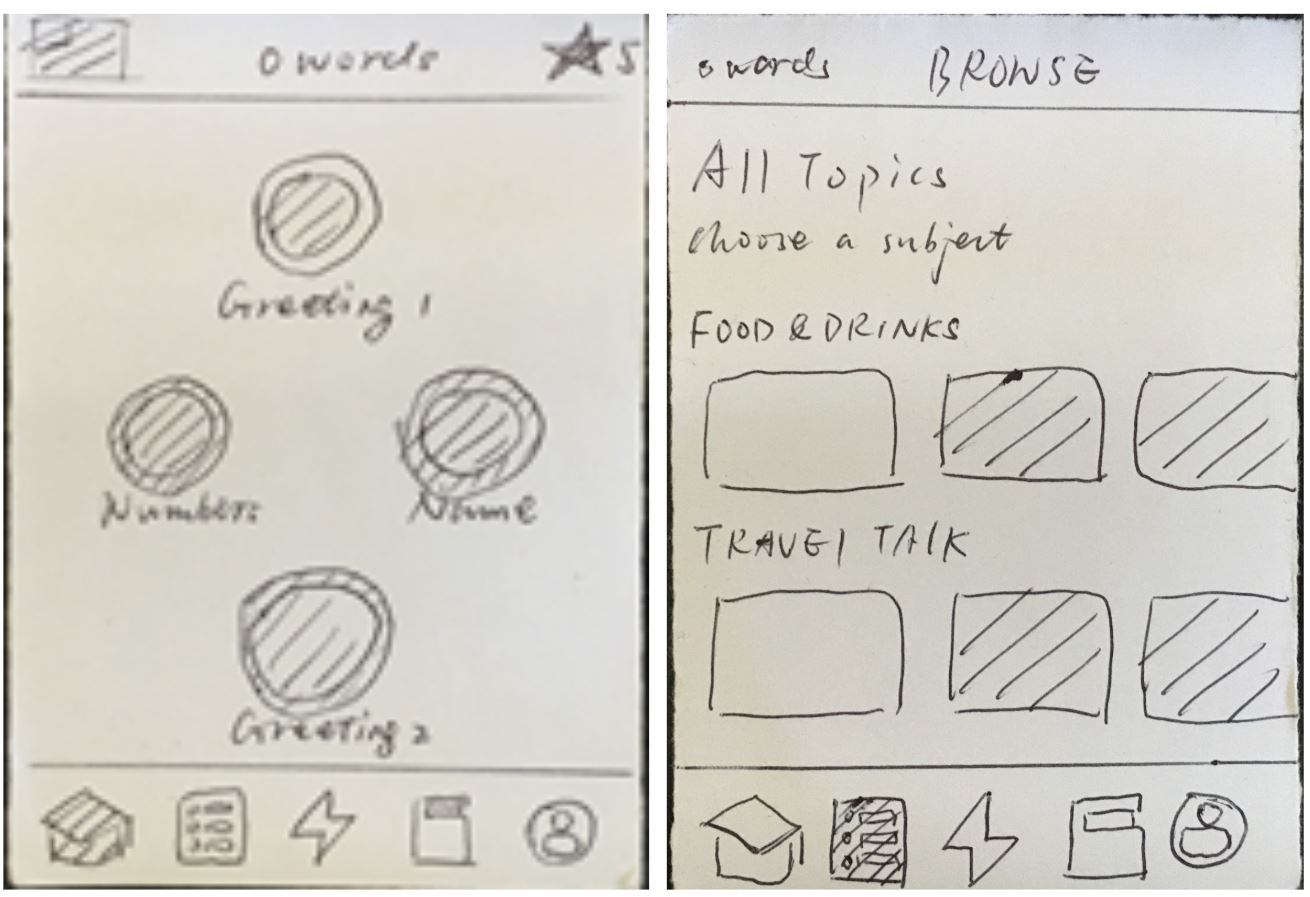 0 words 5
Greeting 1
Numbers Name
Greeting 2
0 words BROWSE
All Topics
choose a subject
FOOD & DRINKS
TRAVEL TALK